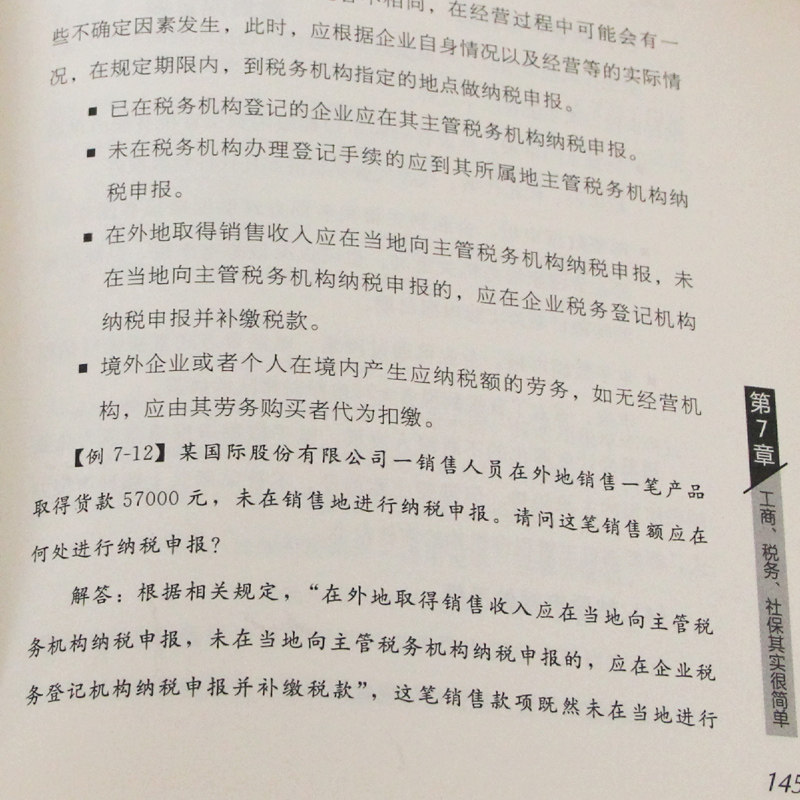 不相同，在经营过程中可能会有一
些不确定因素发生，此时，应根据企业自身情况以及经营等的实际情
况，在规定期限内，到税务机构指定的地点做纳税申报。
■ 已在税务机构登记的企业应在其主管税务机构纳税申报。
■ 未在税务机构办理登记手续的应到其所属地主管税务机构纳
税申报。
■ 在外地取得销售收入应在当地向主管税务机构纳税申报，未
在当地向主管税务机构纳税申报的，应在企业税务登记机构
纳税申报并补缴税款。
■ 境外企业或者个人在境内产生应纳税额的劳务，如无经营机
构，应由其劳务购买者代为扣缴。
【例 7-12】某国际股份有限公司一销售人员在外地销售一笔产品
取得货款 57000 元，未在销售地进行纳税申报。请问这笔销售额应在
何处进行纳税申报？
解答：根据相关规定，“在外地取得销售收入应在当地向主管税
务机构纳税申报，未在当地向主管税务机构纳税申报的，应在企业税
务登记机构纳税申报并补缴税款”，这笔销售款项既然未在当地进行
第7章
工商、税务、社保其实很简单
145